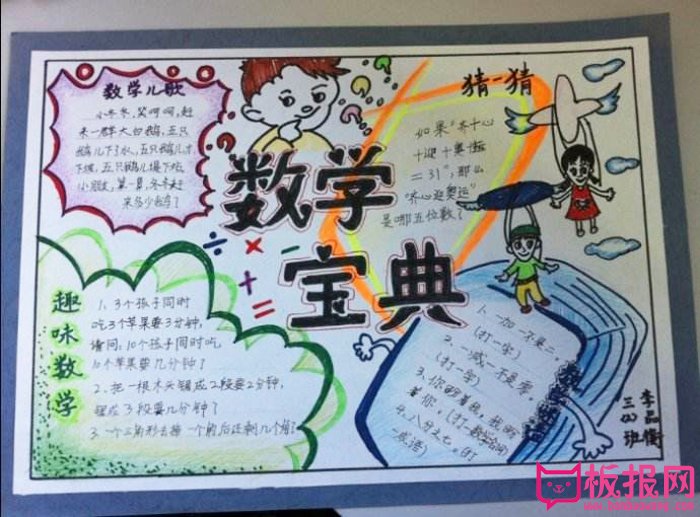 数学儿歌
小冬冬,笑呵呵,赶
来一群大白鹅,五只
鹅儿下了水,五只鹅儿才
下坡,五只鹅儿慢下坡,
小朋友,算一算,冬冬赶
来多少白鹅?
猜一猜
如果"齐十心
十迎十奥十运
=31",那么
"齐心迎奥运"
是哪五位数?
数学
宝典
÷ × - + =
趣味数学
1、3个孩子同时
吃3个苹果要3分钟,
请问:10个孩子同时吃
10个苹果要几分钟?
2、把一根木头锯成2段要2分钟,
锯成3段要几分钟?
3、一个三角形去掉一个角后还剩几个角?
1、一加一不是二,
(打一字)
2、一减一不是零,
(打一字)
3、你盼着我,我盼
着你,(打一数学名词)
4、八分之七,(打
一成语)
三(4)班
李品
板报网